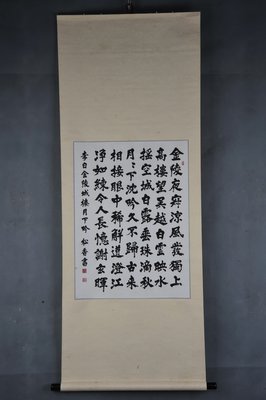 金陵夜寂涼風發獨上
高樓望吳越白雲映水
搖空城白露垂珠滴秋
月〻下沈吟久不歸古來
相接眼中稀解道澄江
淨如練令人長憶謝玄暉
李白金陵城樓月下吟 松香書